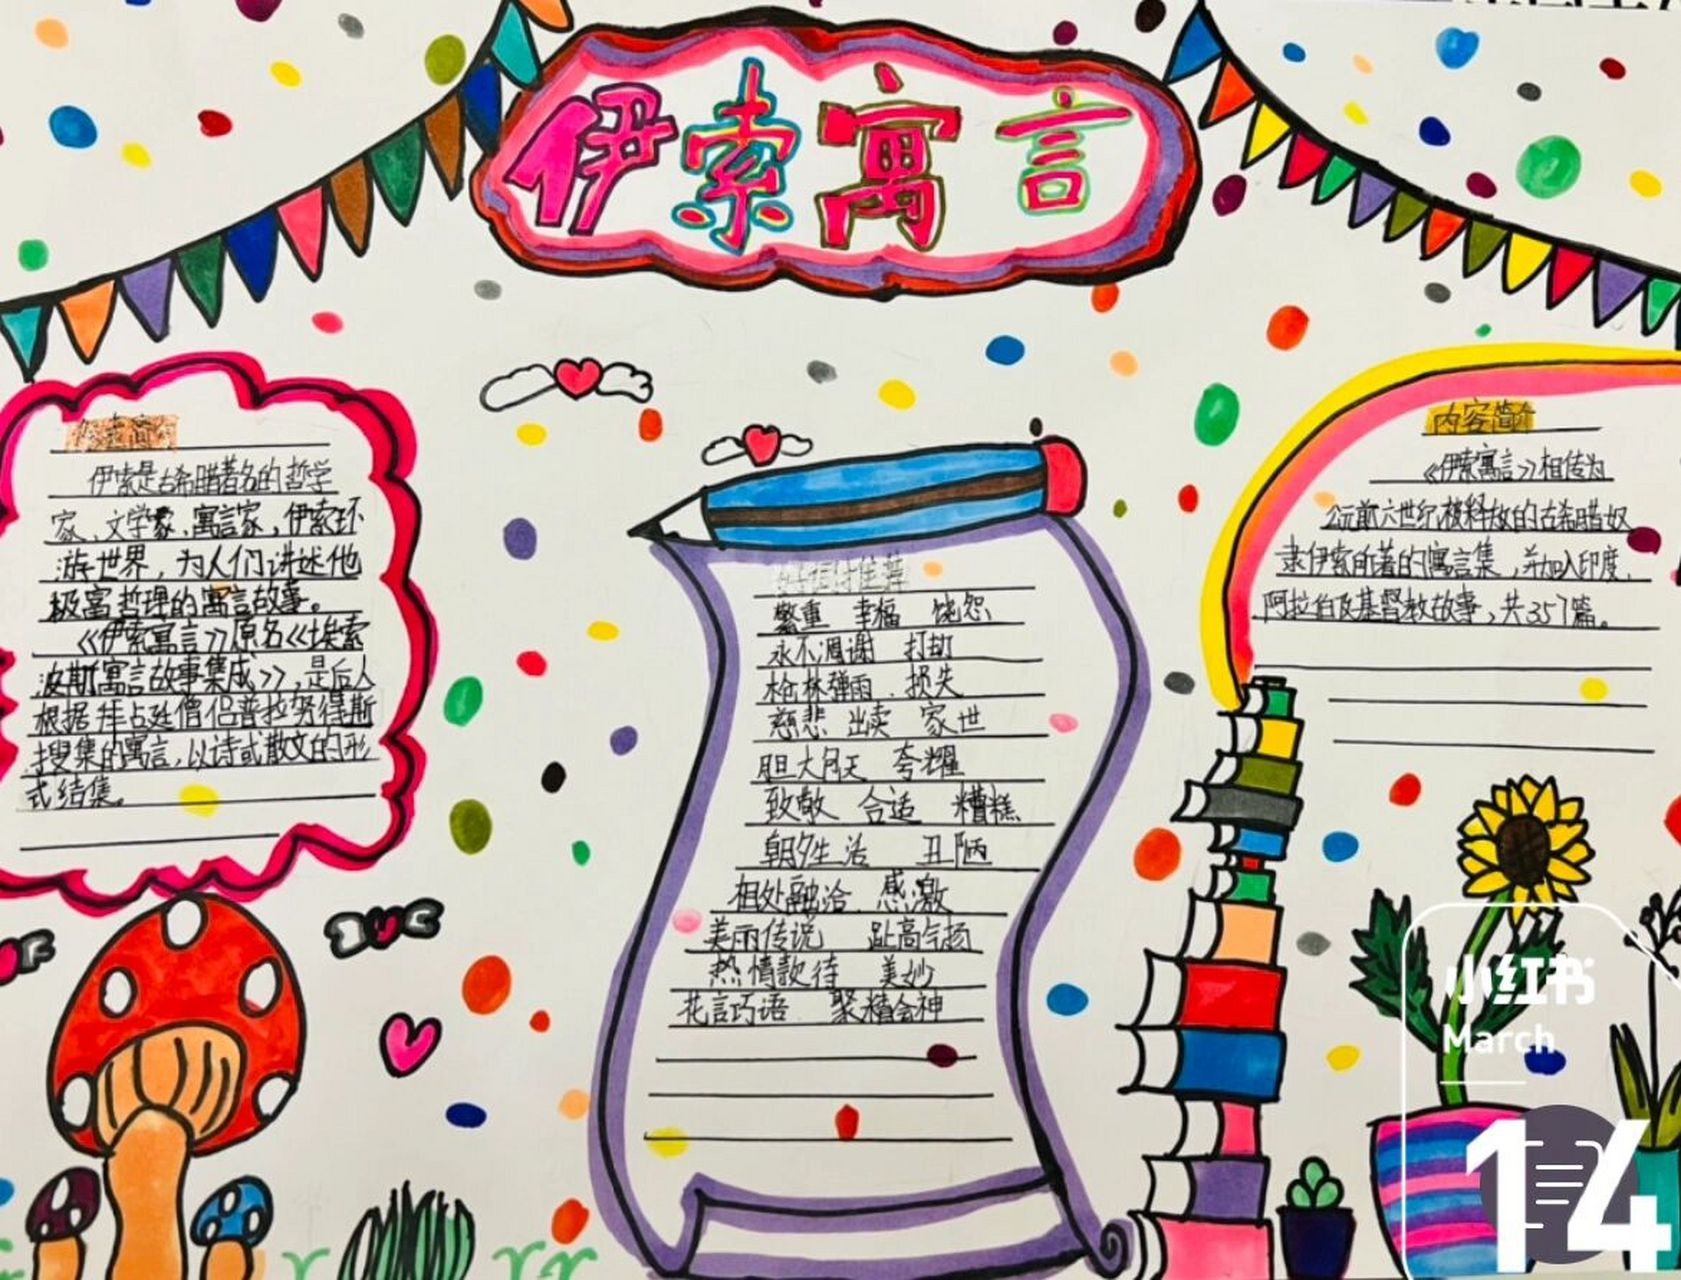 伊索寓言
伊索简介
伊索是古希腊著名的哲学
家、文学家、寓言家，伊索环
游世界，为人们讲述他
极富哲理的寓言故事。
《伊索寓言》原名《埃索
波斯寓言故事集成》，是后人
根据拜占廷僧侣普拉努得斯
搜集的寓言，以诗或散文的形
式结集。
好词好推荐
繁重 幸福 饶恕
永不凋谢 打劫
枪林弹雨 损失
慈悲 出卖 家世
胆大包天 夸耀
致敬 合适 糟糕
朝夕生活 丑陋
相处融洽 感激
美丽传说 趾高气扬
热情款待 美妙
花言巧语 聚精会神
内容简介
《伊索寓言》相传为
公元前六世纪被释放的古希腊奴
隶伊索所著的寓言集，并加入印度、
阿拉伯及基督教故事，共357篇。
小红书
March
14